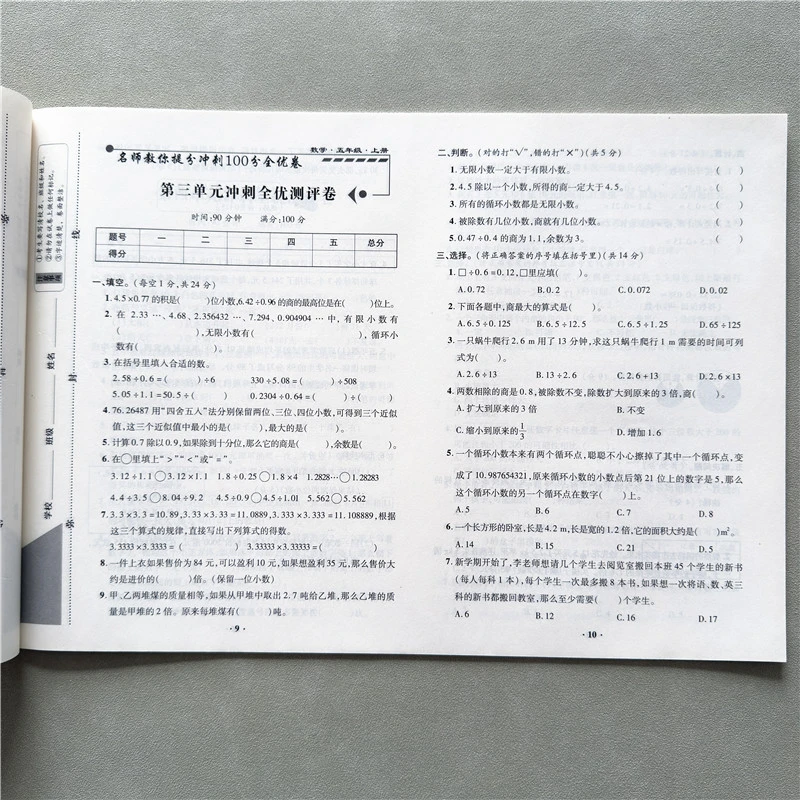 数学·五年级·上册
名师教你提分冲刺100分全优卷
第三单元冲刺全优测评卷
时间:90分钟 满分:100分
题号 一 二 三 四 五 总分
得分
一、填空。(每空1分,共24分)
1. 4.5×0.77的积是( )位小数,6.42÷0.96的商的最高位是在( )位上。
2. 在 2.33 …、4.68、2.356432 …、7.294、0.904904 … 中,有限小数有
( ),无限小数有( ),循环小
数有( )。
3. 在括号里填入合适的数。
2.58÷0.6=( )÷6 330÷5.08=( )÷508
5.05÷1.1=50.5÷( ) 0.2304÷0.64=( )÷( )
4. 76.26487用“四舍五入”法分别保留两位、三位、四位小数,可得到三个近似
值,这三个近似值最小的是( ),最大的是( )。
5. 计算0.7除以0.9,如果除到十分位,那么它的商是( ),余数是( )。
6. 在○里填上“>”“<”或“=”。
3.12÷1.1○3.12×1.1 1.8÷0.25○1.8×4 1.2828…○1.28283
4.4÷3.5○8.04÷9.2 4.5÷0.9○4.5÷1.01 5.562○5.562
7. 3.3×3.3=10.89,3.33×3.33=11.0889,3.333×3.333=11.108889,根据
这三个算式的规律,直接写出下列算式的得数。
3.3333×3.3333=( ) 3.33333×3.33333=( )
8. 一件上衣如果售价为84元,可以盈利10元,如果想盈利35元,那么售价大
约是进价的( )倍。(保留一位小数)
9. 甲、乙两堆煤的质量相等,如果从甲堆中取出2.7吨给乙堆,那么乙堆的质
量是甲堆的2倍。原来每堆煤有( )吨。
·9·
二、判断。(对的打“√”,错的打“×”)(共5分)
1. 无限小数一定大于有限小数。 ( )
2. 4.5除以一个小数,所得的商一定大于4.5。 ( )
3. 所有的循环小数都是无限小数。 ( )
4. 被除数有几位小数,商就有几位小数。 ( )
5. 0.47÷0.4的商为1.1,余数为3。 ( )
三、选择。(将正确答案的序号填在括号里)(共14分)
1. □÷0.6=0.12,□里应填( )。
A. 0.72 B. 0.2 C. 0.072 D. 0.02
2. 下面各题中,商最大的算式是( )。
A. 6.5÷0.125 B. 6.5÷12.5 C. 6.5÷1.25 D. 65÷125
3. 一只蜗牛爬行2.6 m用了13分钟,求这只蜗牛爬行1 m需要的时间可列
式为( )。
A. 2.6÷13 B. 13÷2.6 C. 2.6+13 D. 2.6×13
4. 两数相除的商是0.8,被除数不变,除数扩大到原来的3倍,商( )。
A. 扩大到原来的3倍 B. 不变
C. 缩小到原来的1/3 D. 增加1.6
5. 一个循环小数本来有两个循环点,聪聪不小心擦掉了其中一个循环点,变
成了10.987654321,原来循环小数的小数点后第21位上的数字是5,那么
这个循环小数的另一个循环点在数字( )上。
A. 5 B. 6 C. 7 D. 8
6. 一个长方形的卧室,长是4.2 m,长是宽的1.2倍,它的面积大约是( )m²。
A. 14 B. 15 C. 21 D. 5
7. 新学期开始了,李老师想请几个学生去阅览室搬回本班45个学生的新书
(每人每科1本),每个学生一次最多搬8本书,如果想一次将语、数、英三
科的新书都搬回教室,那么至少需要( )个学生。
A. 6 B. 12 C. 16 D. 17
·10·
学校 班级 姓名
弥 封 线
①考生要写清校名、班级和姓名。
②请勿在试卷上做任何标记。
③字迹清楚,卷面整洁。